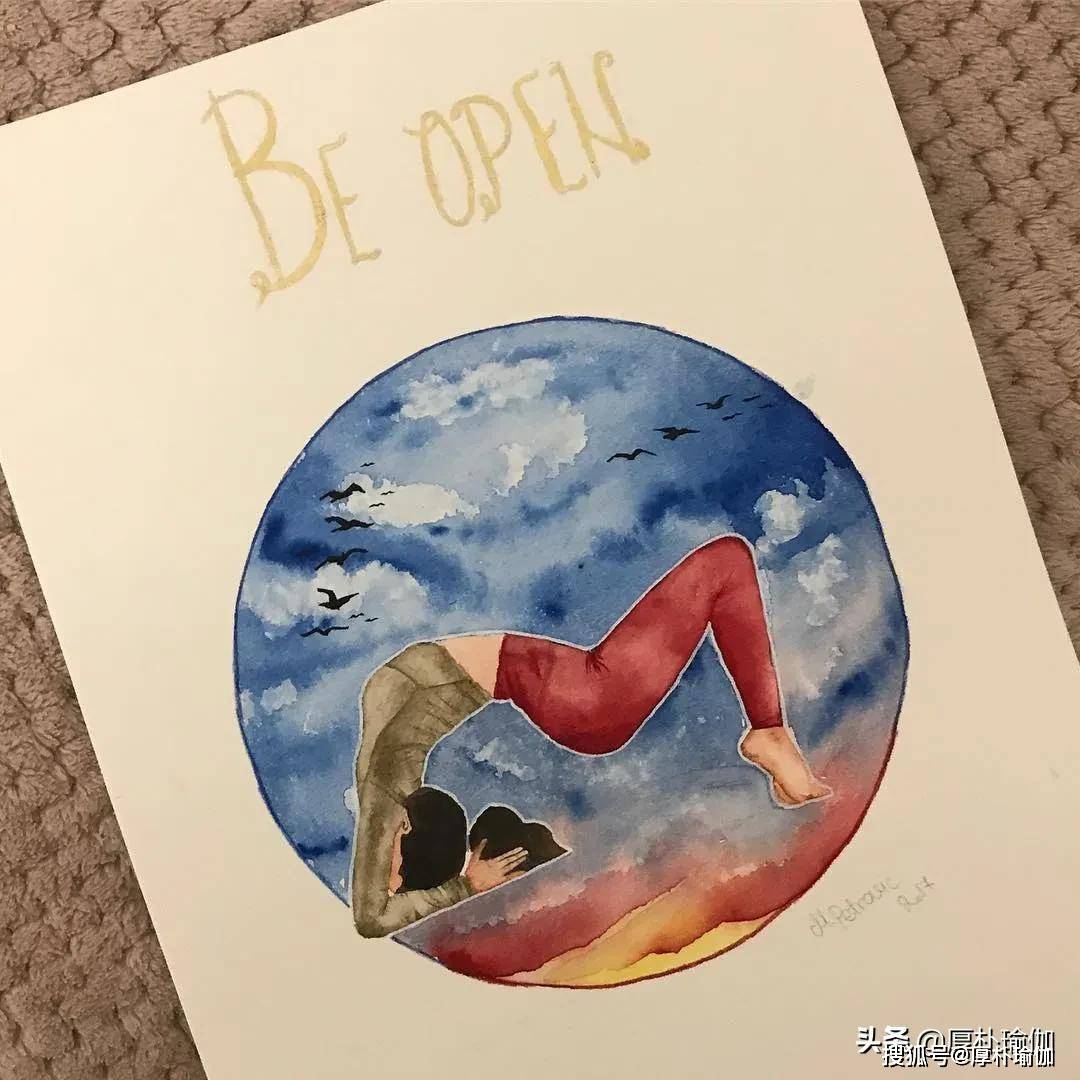 BE OPEN
M Petrovic
2017
头条 @厚朴瑜伽
搜狐号@厚朴瑜伽